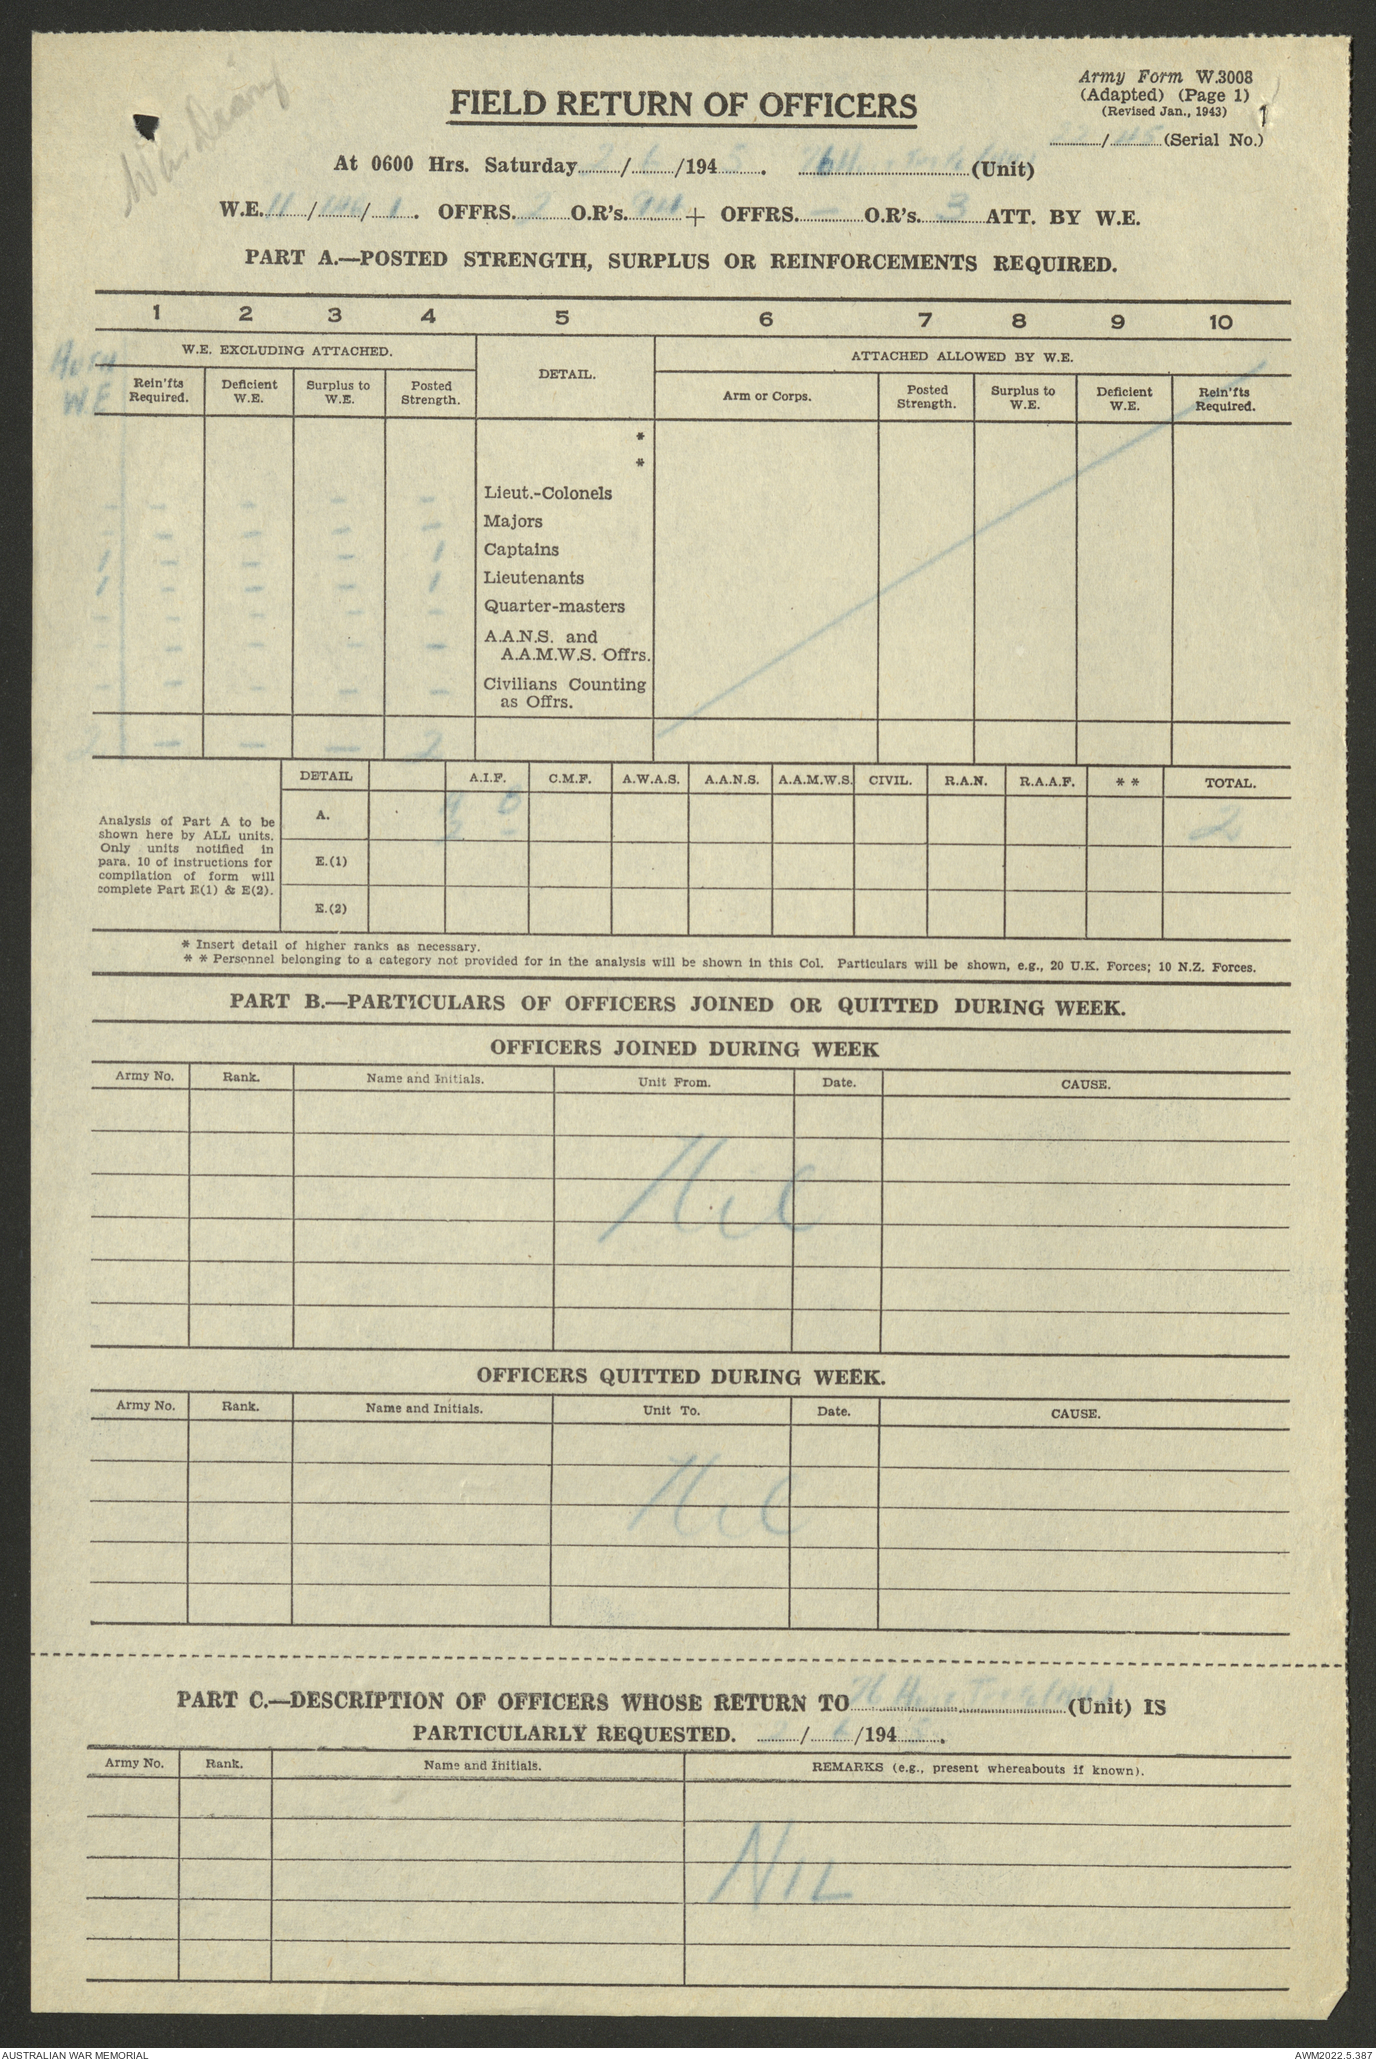 War Diary
FIELD RETURN OF OFFICERS
Army Form W.3008
(Adapted) (Page 1)
(Revised Jan., 1943)
1
22/45 (Serial No.)
At 0600 Hrs. Saturday 2/6/1945. (Unit)
W.E. 11/ /1. OFFRS. 2 O.R's. 94 + OFFRS. — O.R's. 3 ATT. BY W.E.
PART A.—POSTED STRENGTH, SURPLUS OR REINFORCEMENTS REQUIRED.
1 2 3 4 5 6 7 8 9 10
W.E. EXCLUDING ATTACHED. DETAIL. ATTACHED ALLOWED BY W.E.
Auth W E
Rein'fts Required. Deficient W.E. Surplus to W.E. Posted Strength. Arm or Corps. Posted Strength. Surplus to W.E. Deficient W.E. Rein'fts Required.
*
*
- - - - - Lieut.-Colonels
- - - - - Majors
1 - - - 1 Captains
1 - - - 1 Lieutenants
- - - - - Quarter-masters
- - - - - A.A.N.S. and
A.A.M.W.S. Offrs.
- - - - - Civilians Counting
as Offrs.
2 — — — 2
DETAIL A.I.F. C.M.F. A.W.A.S. A.A.N.S. A.A.M.W.S. CIVIL. R.A.N. R.A.A.F. * * TOTAL.
Analysis of Part A to be
shown here by ALL units.
Only units notified in
para. 10 of instructions for
compilation of form will
complete Part E(1) & E(2).
A. A B
2 - 2
E.(1)
E.(2)
* Insert detail of higher ranks as necessary.
* * Personnel belonging to a category not provided for in the analysis will be shown in this Col. Particulars will be shown, e.g., 20 U.K. Forces; 10 N.Z. Forces.
PART B.—PARTICULARS OF OFFICERS JOINED OR QUITTED DURING WEEK.
OFFICERS JOINED DURING WEEK
Army No. Rank. Name and Initials. Unit From. Date. CAUSE.
Nil
OFFICERS QUITTED DURING WEEK.
Army No. Rank. Name and Initials. Unit To. Date. CAUSE.
Nil
PART C.—DESCRIPTION OF OFFICERS WHOSE RETURN TO (Unit) IS
PARTICULARLY REQUESTED. 2/6/1945.
Army No. Rank. Name and Initials. REMARKS (e.g., present whereabouts if known).
NIL
AUSTRALIAN WAR MEMORIAL
AWM2022.5.387